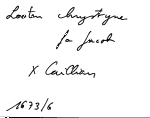 Loeten chrystyne
fa Jacob
x Cuilliem
1673/6